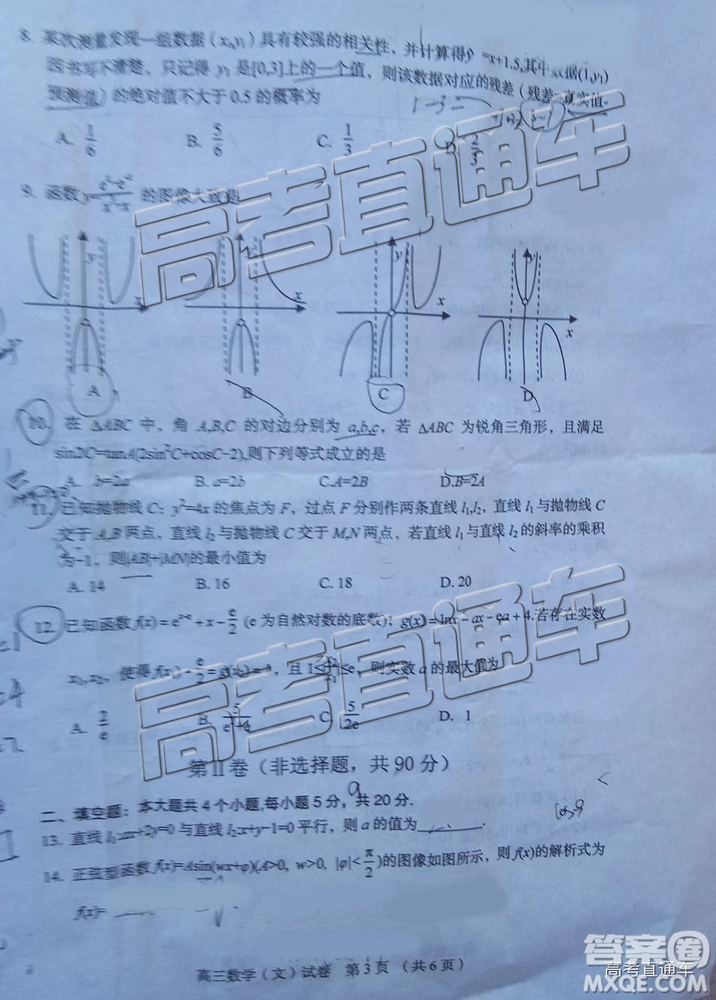 8. 某次测量发现一组数据(xᵢ,yᵢ)具有较强的相关性，并计算得ŷ=x+1.5,其中数据(1,y₁)
因书写不清楚，只记得 y₁ 是[0,3]上的一个值，则该数据对应的残差（残差=真实值-
预测值）的绝对值不大于 0.5 的概率为
1-3=
A. 1/6 B. 5/6 C. 1/3 D. 2/3
9. 函数 的图像大致是
y y y
x x x x
A B C D
10. 在 △ABC 中，角 A,B,C 的对边分别为 a,b,c，若 △ABC 为锐角三角形，且满足
sin2C=tanA(2sin²C+cosC-2),则下列等式成立的是
A. b=2a B. a=2b C.A=2B D.B=2A
11. 已知抛物线 C：y²=4x 的焦点为 F，过点 F 分别作两条直线 l₁,l₂，直线 l₁ 与抛物线 C
交于 A,B 两点，直线 l₂ 与抛物线 C 交于 M,N 两点，若直线 l₁ 与直线 l₂ 的斜率的乘积
为-1，则|AB|+|MN|的最小值为
A. 14 B. 16 C. 18 D. 20
12. 已知函数 f(x)= +x- e/2 (e 为自然对数的底数)；g(x)=lnx-ax-ea+4.若存在实数
x₁,x₂，使得 f(x₁)- e/2 = g(x₂)= ，且 1≤ ≤e，则实数 a 的最大值为
A. 2/e B. C. 5/2e D. 1
第II卷（非选择题，共 90 分）
二、填空题：本大题共 4 个小题,每小题 5 分，共 20 分.
a
13. 直线 l₁:ax+2y=0 与直线 l₂:x+y-1=0 平行，则 a 的值为
14. 正弦型函数 f(x)=Asin(wx+φ)(A>0, w>0, |φ|<π/2)的图像如图所示，则 f(x)的解析式为
f(x)=
高三数学（文）试卷 第 3 页 （共 6 页）
高考直通车
高考直通车
答案圈
高考直通车
MXQE.COM